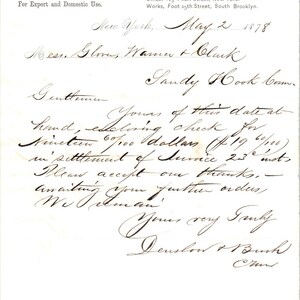 For Export and Domestic Use.
Works, Foot 25th Street, South Brooklyn.
New York, May 2 1878
Mess. Glover Warner & Clark
Sandy Hook Conn
Gentlemen
Yours of this date at
hand, enclosing check for
Nineteen 60/100 dollars ($19 60/100)
in settlement of Invoice 23d inst
Please accept our thanks.—
awaiting your further orders
We remain
Yours very Truly
Denslow & Bush